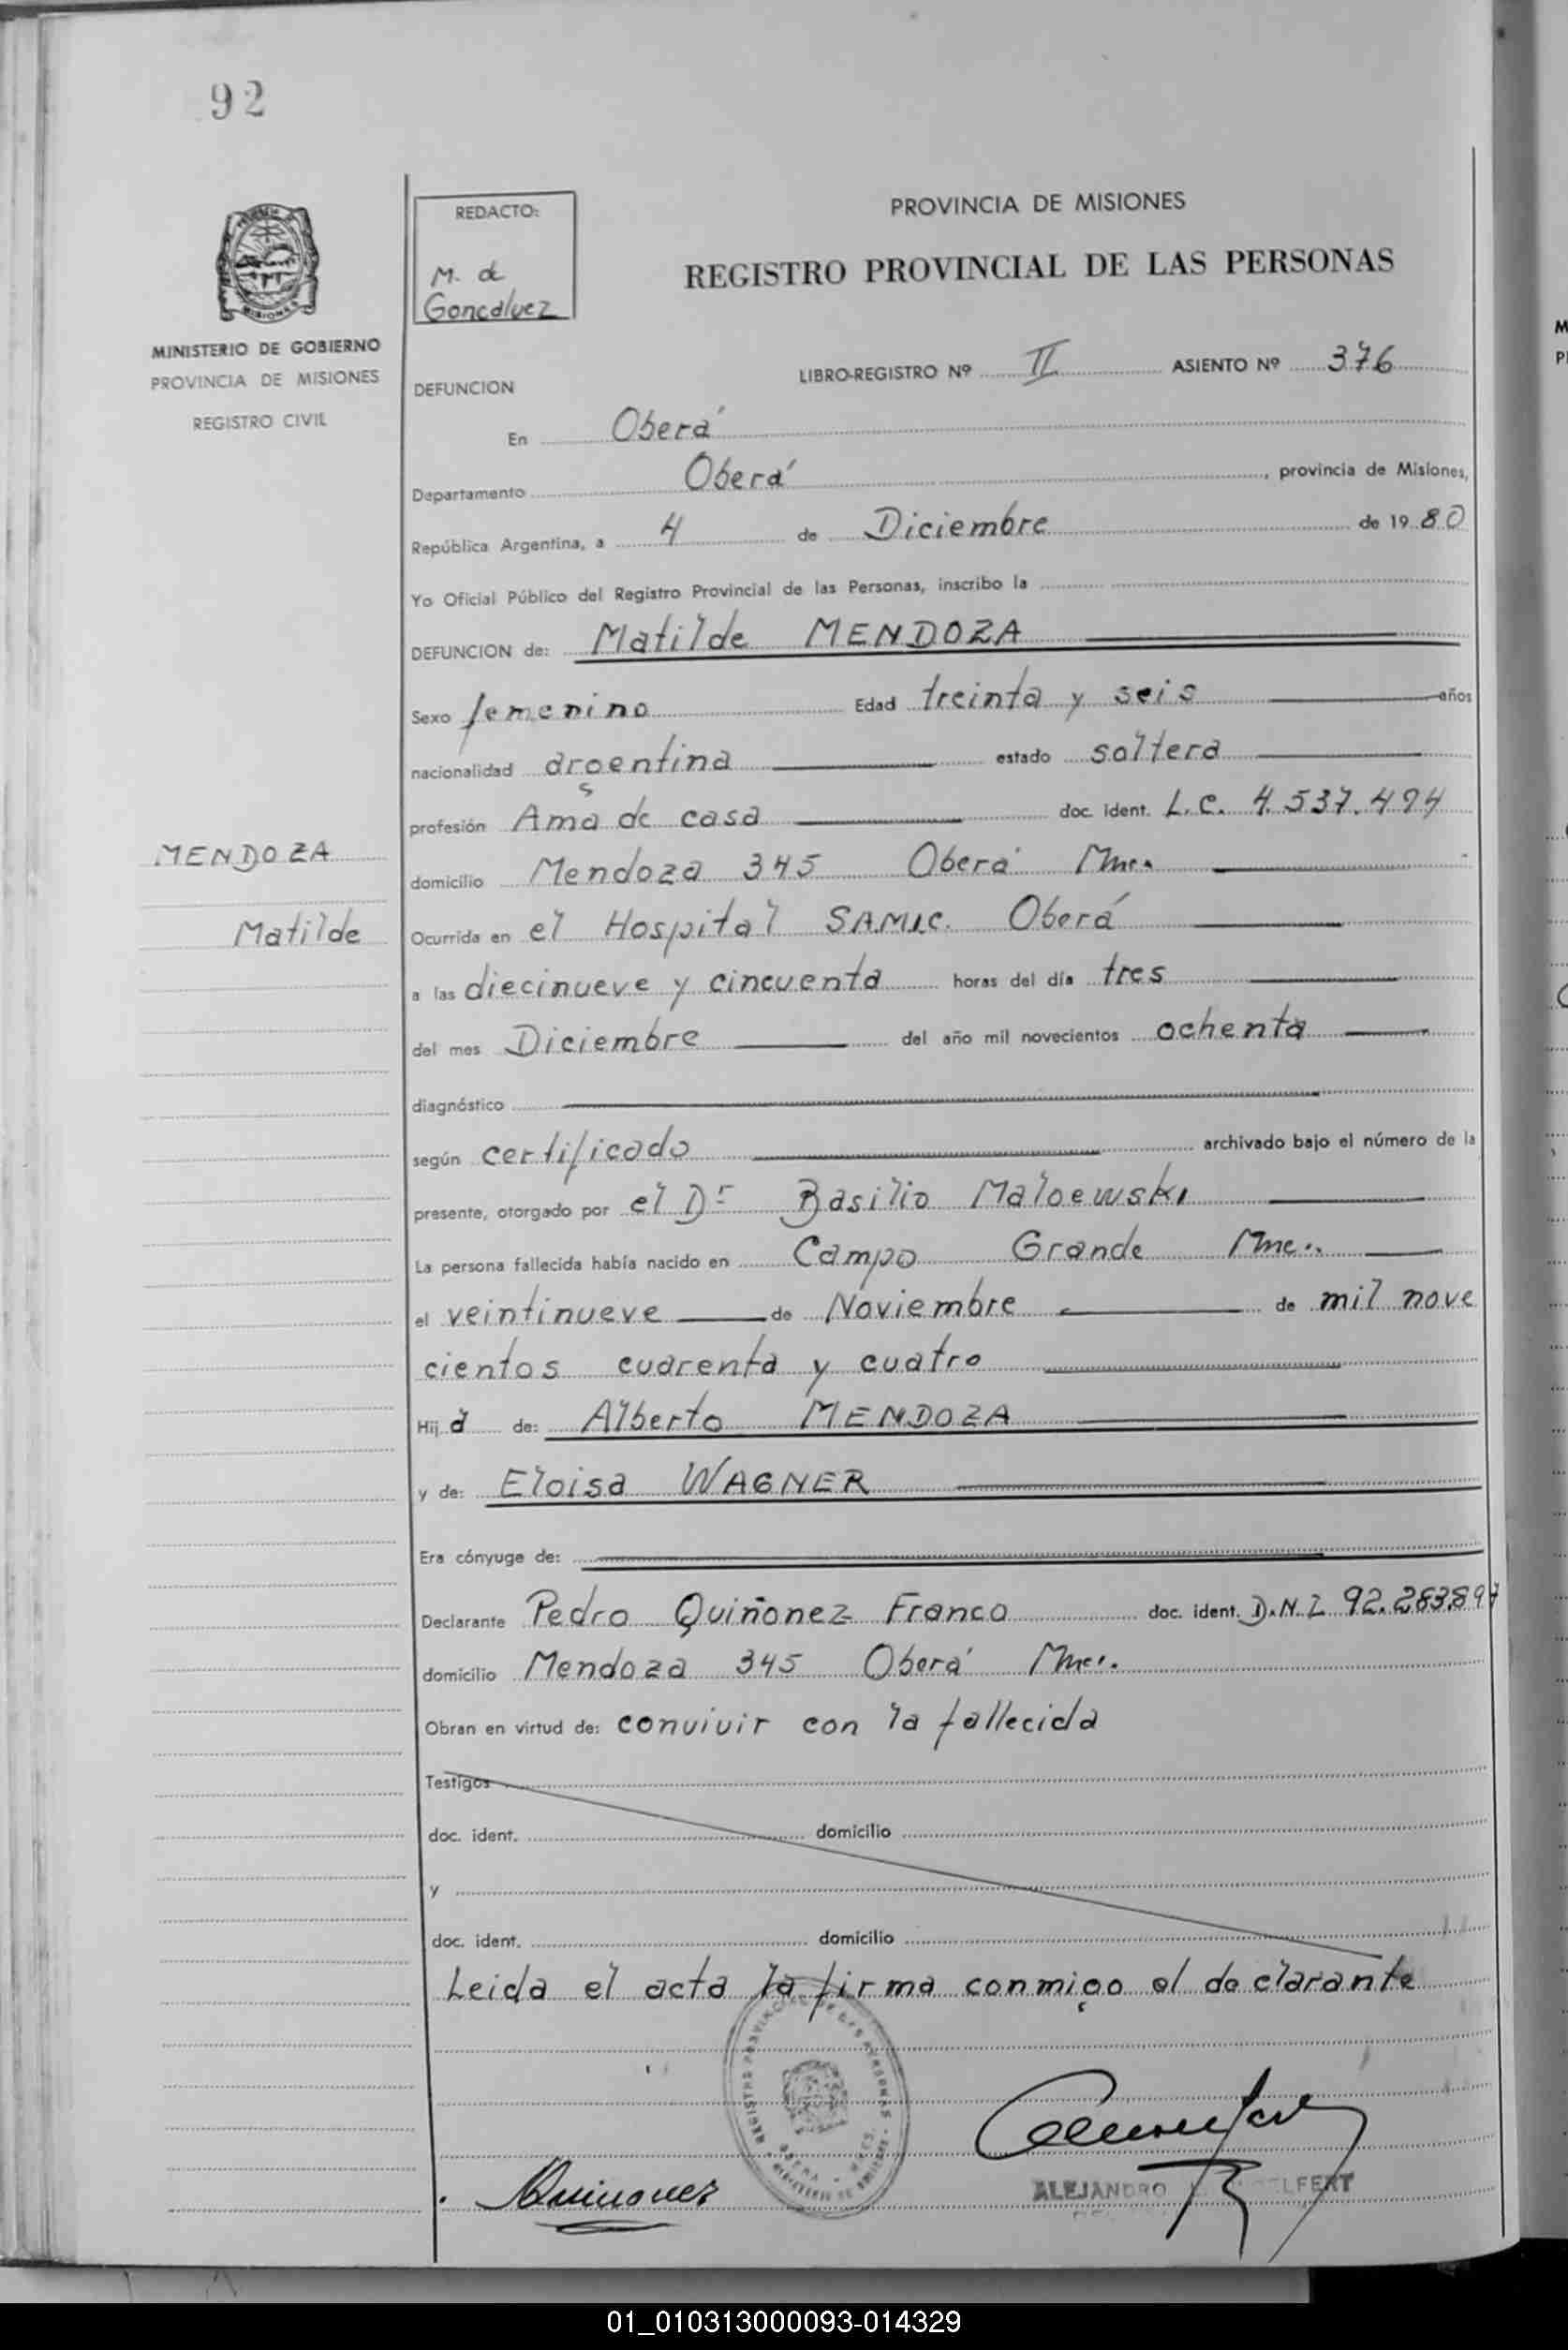 92
REDACTO:
M. de
Goncalvez
MINISTERIO DE GOBIERNO
PROVINCIA DE MISIONES
REGISTRO CIVIL
PROVINCIA DE MISIONES
REGISTRO PROVINCIAL DE LAS PERSONAS
LIBRO-REGISTRO Nº II ASIENTO Nº 376
DEFUNCION
En Oberá
Departamento Oberá, provincia de Misiones,
República Argentina, a 4 de Diciembre de 1980
Yo Oficial Público del Registro Provincial de las Personas, inscribo la
DEFUNCION de: Matilde MENDOZA
Sexo femenino Edad treinta y seis años
nacionalidad argentina estado soltera
profesión Ama de casa doc. ident. L.C. 4.537.494
MENDOZA
domicilio Mendoza 345 Oberá Mnes.
Matilde
Ocurrida en el Hospital SAMIC. Oberá
a las diecinueve y cincuenta horas del día tres
del mes Diciembre del año mil novecientos ochenta
diagnóstico
según certificado archivado bajo el número de la
presente, otorgado por el Dr Basilio Maloewski
La persona fallecida había nacido en Campo Grande Mnes.
el veintinueve de Noviembre de mil nove
cientos cuarenta y cuatro
Hija de: Alberto MENDOZA
y de: Eloisa WAGNER
Era cónyuge de:
Declarante Pedro Quiñonez Franco doc. ident. D.N.I. 92.283.897
domicilio Mendoza 345 Oberá Mnes.
Obran en virtud de: convivir con la fallecida
Testigos
doc. ident. domicilio
y
doc. ident. domicilio
Leida el acta la firma conmigo el declarante
Quinonez
ALEJANDRO
01_010313000093-014329